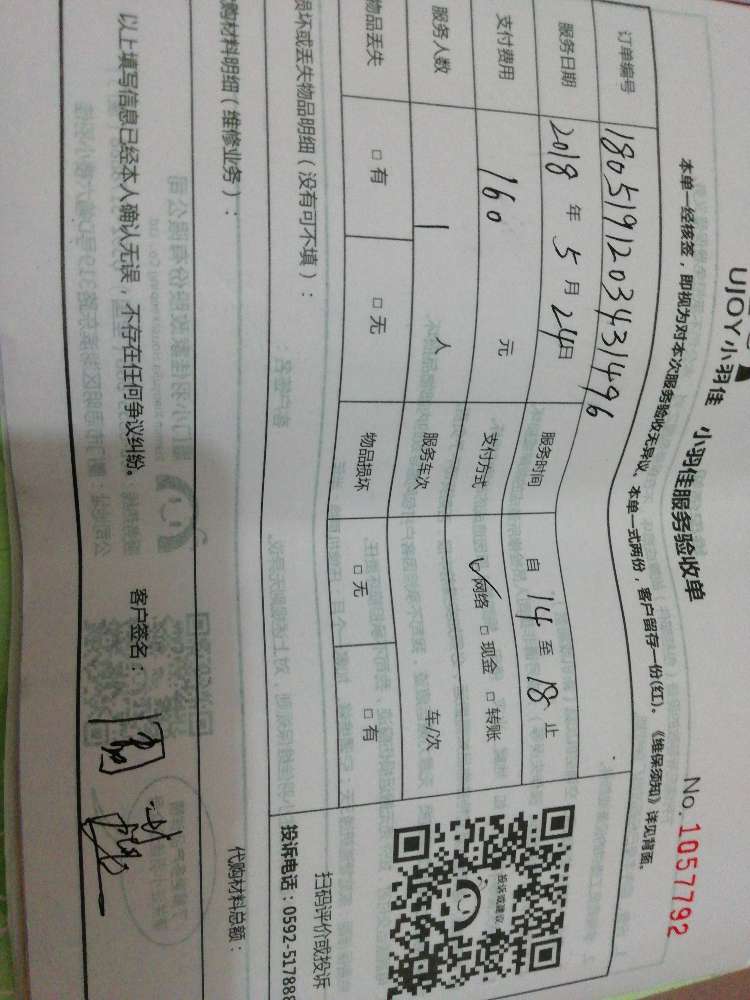 UJOY小羽佳 小羽佳服务验收单
No. 1057792
本单一经核签，即视为对本次服务验收无异议、本单一式两份，客户留存一份(红)。《维保须知》详见背面。
订单编号 1805191203431496
服务日期 2018 年 5 月 24 日 服务时间 自 14 至 18 止
支付费用 160 元 支付方式 网络 □ 现金 □ 转账
服务人数 1 人 服务车次 车/次
物品丢失 □ 有 □ 无 物品损坏 □ 无 □ 有
投诉或建议
扫码评价或投诉
投诉电话：0592-517888
损坏或丢失物品明细（没有可不填）：
代购材料明细（维修业务）： 代购材料总额：
以上填写信息已经本人确认无误，不存在任何争议纠纷。 客户签名：